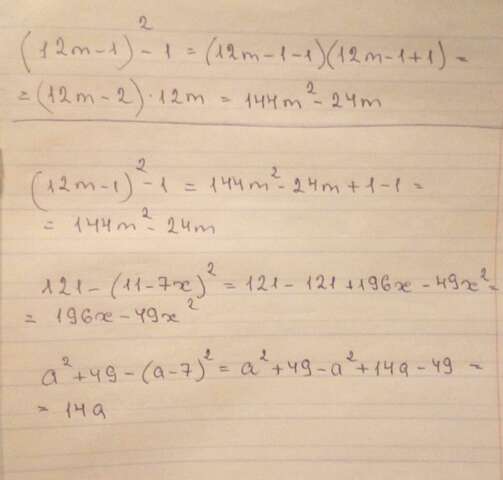 (12m-1)² - 1 = (12m-1-1)(12m-1+1) =
= (12m-2)·12m = 144m² - 24m
(12m-1)² - 1 = 144m² - 24m + 1 - 1 =
= 144m² - 24m
121 - (11-7x)² = 121 - 121 + 196x - 49x² =
= 196x - 49x²
a² + 49 - (a-7)² = a² + 49 - a² + 14a - 49 =
= 14a